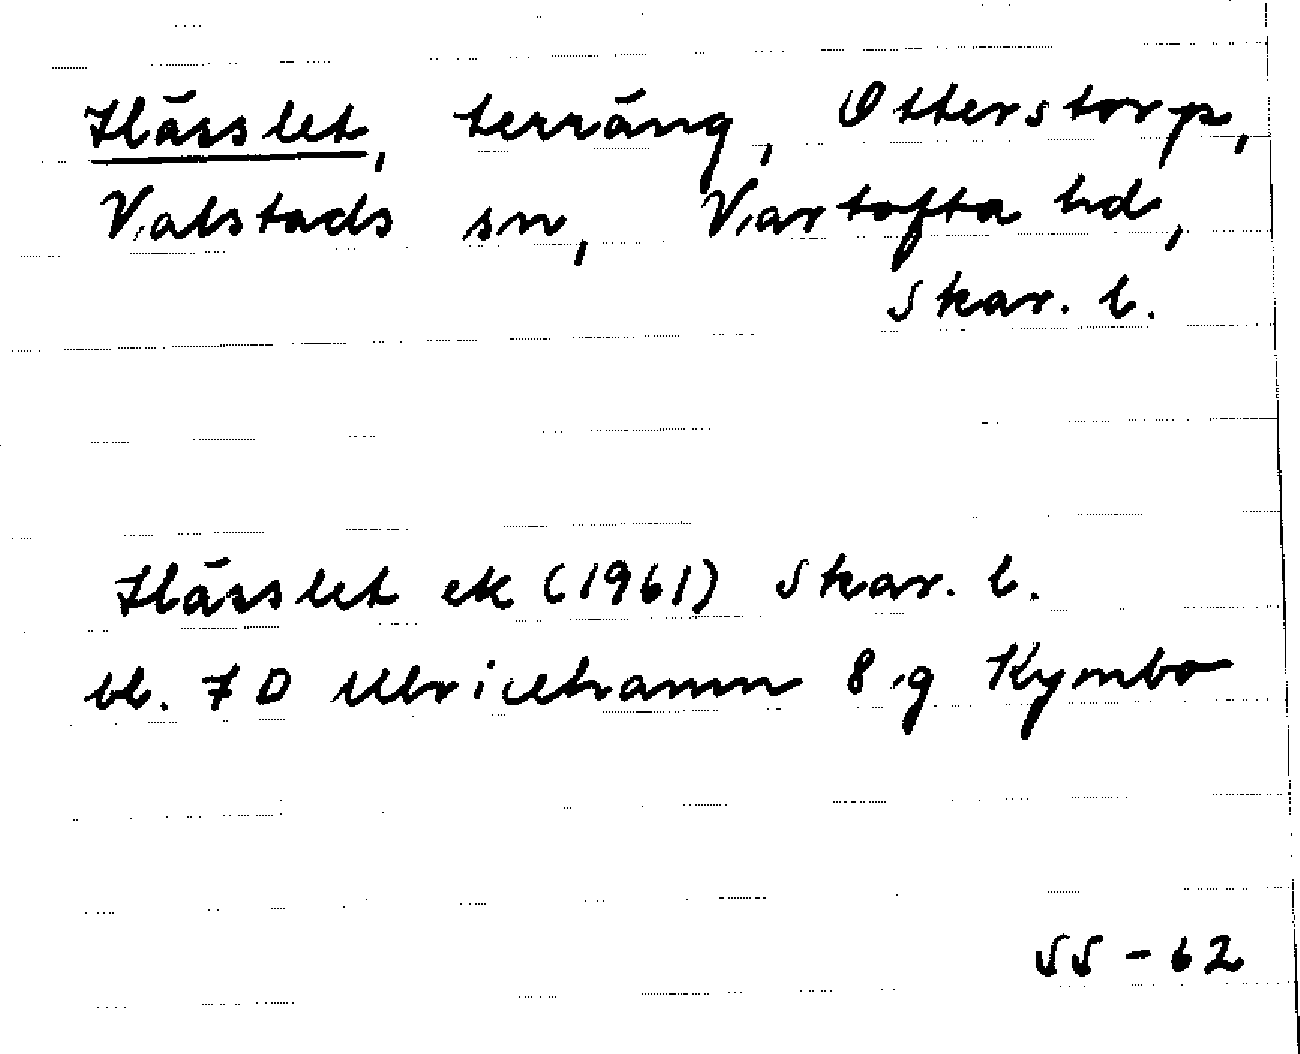 Hässlet, terräng, Otterstorp,
Valstads sn, Vartofta hd,
Skar. l.
Hässlet ek (1961) Skar. l.
bl. 7 D Ulricehamn 8 g Kymbo
SS - 62